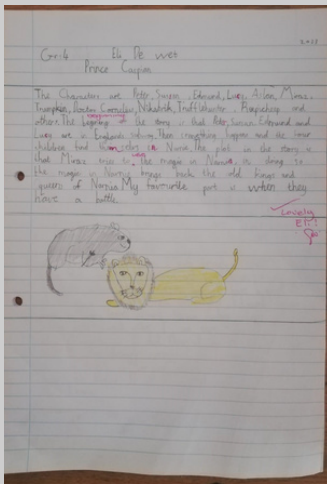 Gr:4 Eli De wet
Prince Caspian
The Characters are Peter, Susan, Edmund, Lucy, Aslan, Miraz,
Trumpkin, Doctor Cornelius, Nikabrik, Trufflehunter, Reepicheep and
others. The beginning of the story is that Peter, Susan, Edmund and
Lucy we in England. Then something happens and the four
children find in Narnia. The plot in the story is
that Miraz tries to the magic in Narnia, in doing so
the magic in Narnia brings back the old kings and
queens of Narnia. My favourite part is when they
have a battle.
Lovely
Eli!